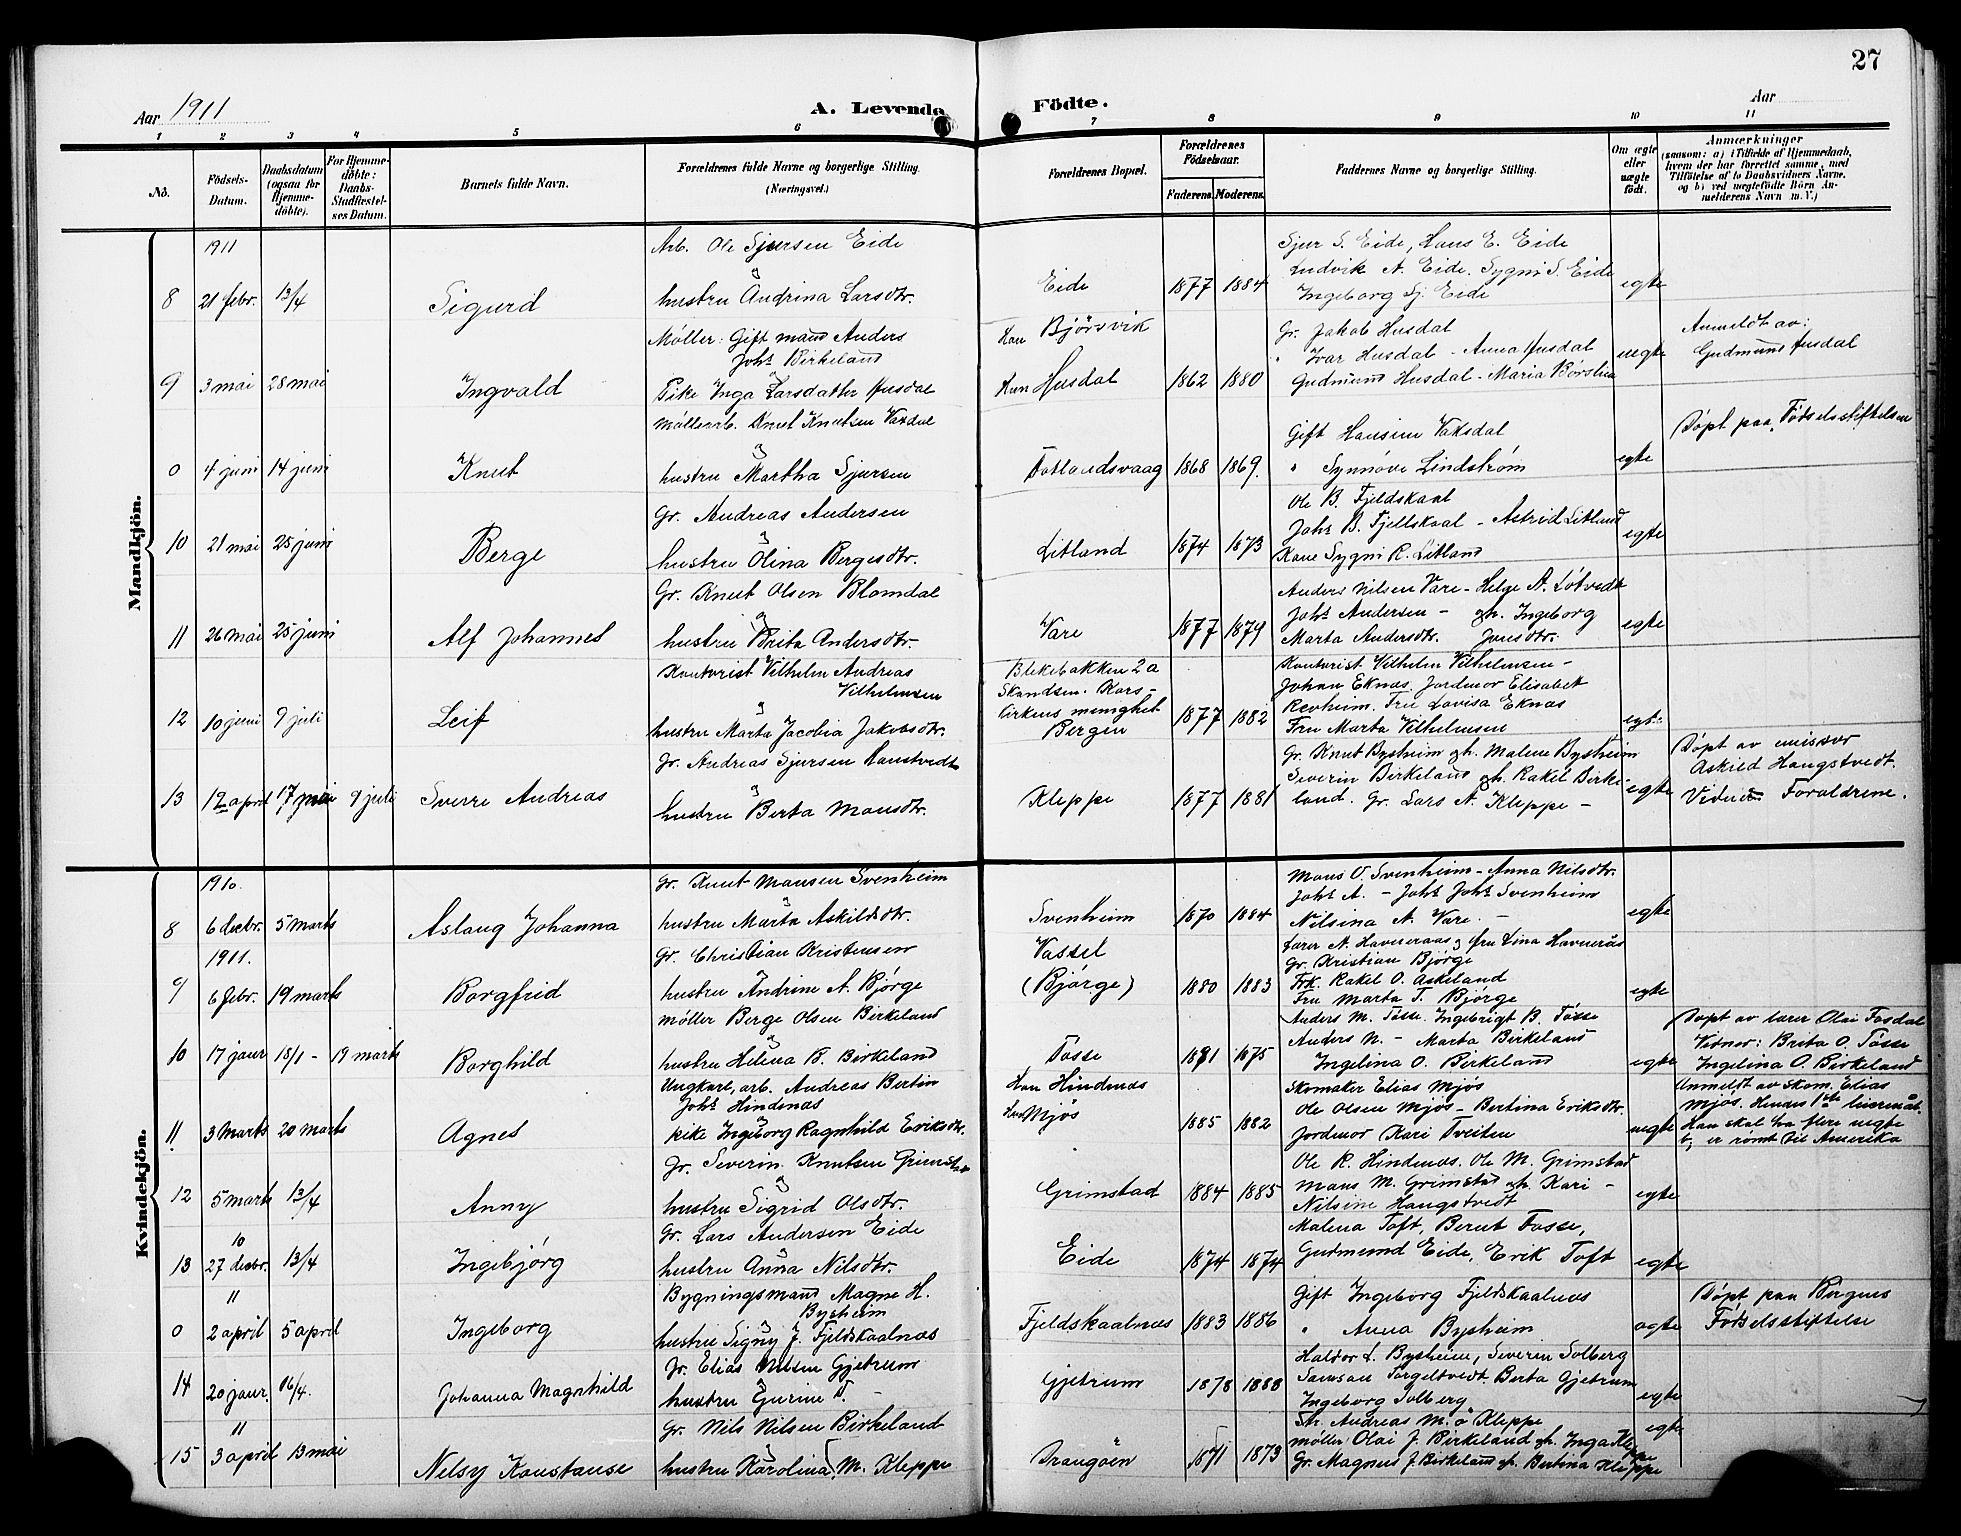 27
Aar 1911
A. Levende Födte.
Aar
1 2 3 4 5 6 7 8 9 10 11
No.
Födsels-Datum.
Daabsdatum (ogsaa for Hjemme-döbte).
For Hjemme-döbte: Daabs-Stadfæstel-ses Datum.
Barnets fulde Navn.
Forældrenes fulde Navne og borgerlige Stilling.
(Næringsvei.)
Forældrenes Bopæl.
Forældrenes Födselsaar.
Faderens. Moderens.
Faddernes Navne og borgerlige Stilling.
Om ægte eller uægte födt.
Anmærkninger
(saasom: a) i Tilfælde af Hjemmedaab, hvem der har forrettet samme, med Tilföielse af to Daabsvidners Navne. og b) ved uægtefödte Börn An-melderens Navn m. V.)
Mandkjön.
1911 Arb. Ole Sjursen Eide Sjur S. Eide, Hans E. Eide
og Ludvik A. Eide. Sygni S. Eide
8 21 febr. 13/4 Sigurd hustru Andrina Larsdtr. Eide 1877 1884 Ingeborg Sj. Eide egte
Møller: Gift mand Anders Han Bjørsvik Gr. Jakob Husdal Anmeldt av:
Johs Birkeland " Ivar Husdal - Anna Husdal uegte Gudmund Husdal
9 3 mai 28 mai Ingvald Pike Inga Larsdatter Husdal Hun Husdal 1862 1880 Gudmund Husdal - Maria
møllerarb. Knut Knutsen Vaxdal Gift Hansine Vaksdal Døpt paa Fødselsstiftelsen
0 4 juni 14 juni Knut hustru Martha Sjursen Fotlandsvaag 1868 1869. " Synnøve Lindstrøm egte
Gr. Andreas Andersen Ole B. Fjeldskaal
og Johs B. Fjellskaal - Astrid Litland
10 21 mai 25 juni Berge hustru Olina Bergesdtr. Litland 1874 1873 Kone Sygni R. Litland egte
Gr. Knut Olsen Blomdal Anders Nilsen Vare - Helge A. Løtvedt
og Johs Andersen - gh. Ingeborg
11 26 mai 25 juni Alf Johannes hustru Brita Andersdtr. Vare 1877 1879 Marta Andersdtr. Jonsdtr. egte
Kontorist Vilhelm Andreas Blekebakken 2a Kontorist Vilhelm Vilhelmsen -
Vilhelmsen Skandsen. Kors- Johan Eknæs. Jordmor Elisabet
og kirkens menighet Revheim. Fru Lovisa Eknæs
12 10 juni 9 juli Leif hustru Marta Jacobia Jakobsdtr. Bergen 1877 1882 Fru Marta Vilhelmsen egt.
Gr. Andreas Sjursen Haustvedt Gr. Knut Bysheim gh. Malene Bysheim Døpt av emissær
Severin Birkeland gh. Rakel Birke- Askild Hangstvedt.
13 12 april 17 mai 9 juli Sverre Andreas hustru Berta Monsdtr. Kleppe 1877 1881 land. Gr. Lars A. Kleppe - egte Vidner Foræeldrene.
Kvindekjön.
1910. Gr. Knut Monsen Svenheim Mons O. Svenheim - Anna Nilsdtr.
og Johs A. - Johs Johs Svenheim
8 6 decbr. 5 marts Aslaug Johanna hustru Marta Askildsdtr. Svenheim 1870 1884 Nilsina A. Vare. - egte
1911. Gr. Christian Kristensen Vassel Lærer A. Havneraas og fru Lina Havnerås
Gr. Kristian Bjørge
9 6 febr. 19 marts Borgfrid hustru Andrine A. Bjørge (Bjørge) 1880 1883 Frk. Rakel O. Askeland
Fru Marta T. Bjørge egte
møller Berge Olsen Birkeland Anders M. Tøsse. Ingebrigt B. Tøsse Døpt av lærer Olai Fosdal
og Anders N. - Marta Birkeland Vidner: Brita O. Tøsse
10 17 janr 18/1 - 19 marts Borghild hustru Helena B. Birkeland Tøsse 1871 1875 Ingelina O. Birkeland egte Ingelina O. Birkeland
Ungkarl, arb. Andreas Bertin Han Hindenæs Skomaker Elias Mjøs Anmeldt av skom. Elias
Johs Hindenæs Hun Mjøs Ole Olsen Mjøs - Bertina Eriksdtr. Mjøs. Hendes 1ste leiermål.
11 3 marts 20 marts Agnes pike Ingeborg Ragnhild Eriksdtr. 1885 1882 Jordmor Kari Tveiten uegte Han skal ha flere uegte
b; er rømt til Amerika
Gr. Severin Knutsen Grimstad Ole K. Hindenæs. Ole M. Grimstad
og Mons M. Grimstad gh. Kari -
12 5 marts 13/4 Anny hustru Sigrid Olsdtr. Grimstad 1884 1885 Nilsine Hangstvedt egte
10 Gr. Lars Andersen Eide Malena Toft, Berut Fosse,
13 27 decbr. 13/4 Ingebjørg hustru Anna Nilsdtr. Eide 1874 1874 Gudmund Eide, Erik Toft egte
11 Bygningsmand Magne H. Gift Ingeborg Fjeldskaalnæs Døpt paa Bergens
Bysheim
0 2 april 5 april Ingeborg hustru Signy J. Fjeldskaalnæs Fjeldskaalnæs 1883 1886 " Anna Bysheim egte Fødselsstiftelse
Gr. Elias Nilsen Gjetrum Haldor L. Bysheim, Severin Solberg
og Samson Torgeltvedt. Berta Gjetrum
14 20 janr. 16/4. Johanna Magnhild hustru Gurine T. - Gjetrum 1878 1888 Ingeborg Solberg egte
11 Gr. Nils Nilsen Birkeland Str. Andreas M. å Kleppe egte
møller Olai J. Birkeland gh. Inga Kleppe
15 3 april 13 mai Nelsy Konstanse hustru Karolina M. Kleppe Drangøen 1871 1873 Gr. Magnus J. Birkeland gh. Bertina Kleppe